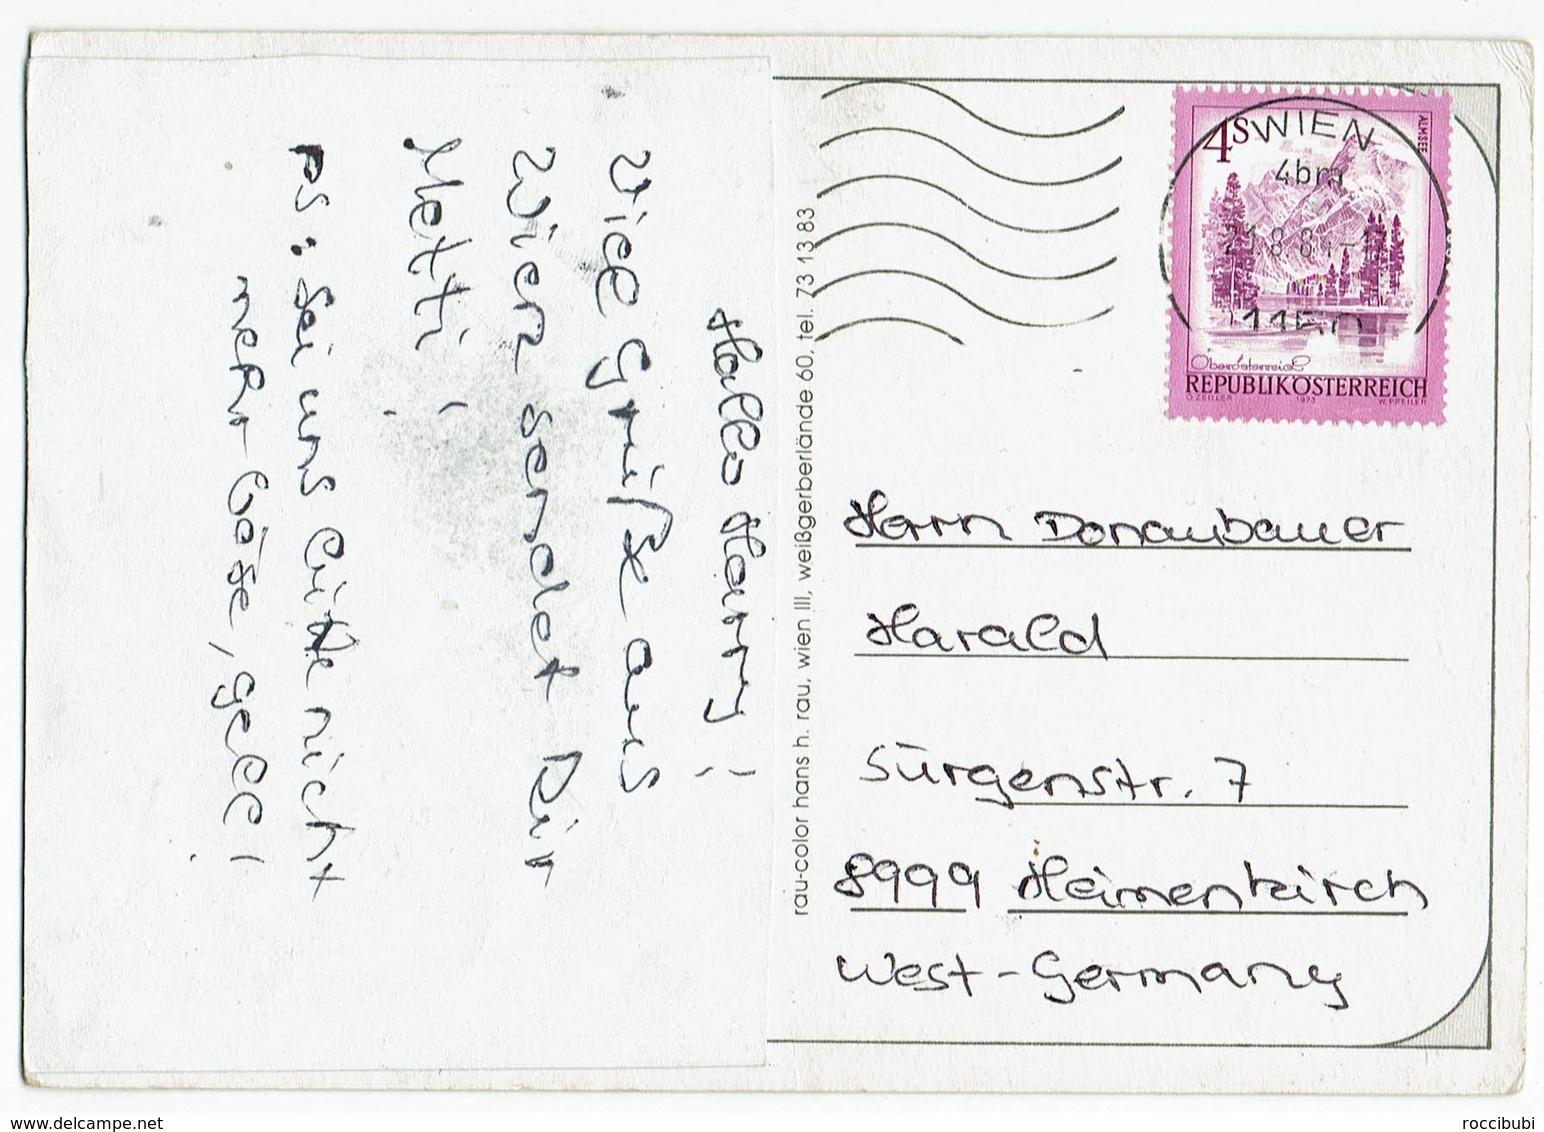 Hallo Harry!
Viele Grüße aus
Wien sendet Dir
Metti!
PS: Sei uns bitte nicht
mehr böse, gell!
rau-color hans h. rau, wien III, weißgerberlände 60, tel. 73 13 83
4S
ALMSEE
Oberösterreich
REPUBLIK ÖSTERREICH
O. ZEILLER 1973 W. PFEILER
WIEN
1150
Herrn Donaubauer
Harald
Sürgenstr. 7
8999 Heimenkirch
West-Germany
www.delcampe.net
roccibubi